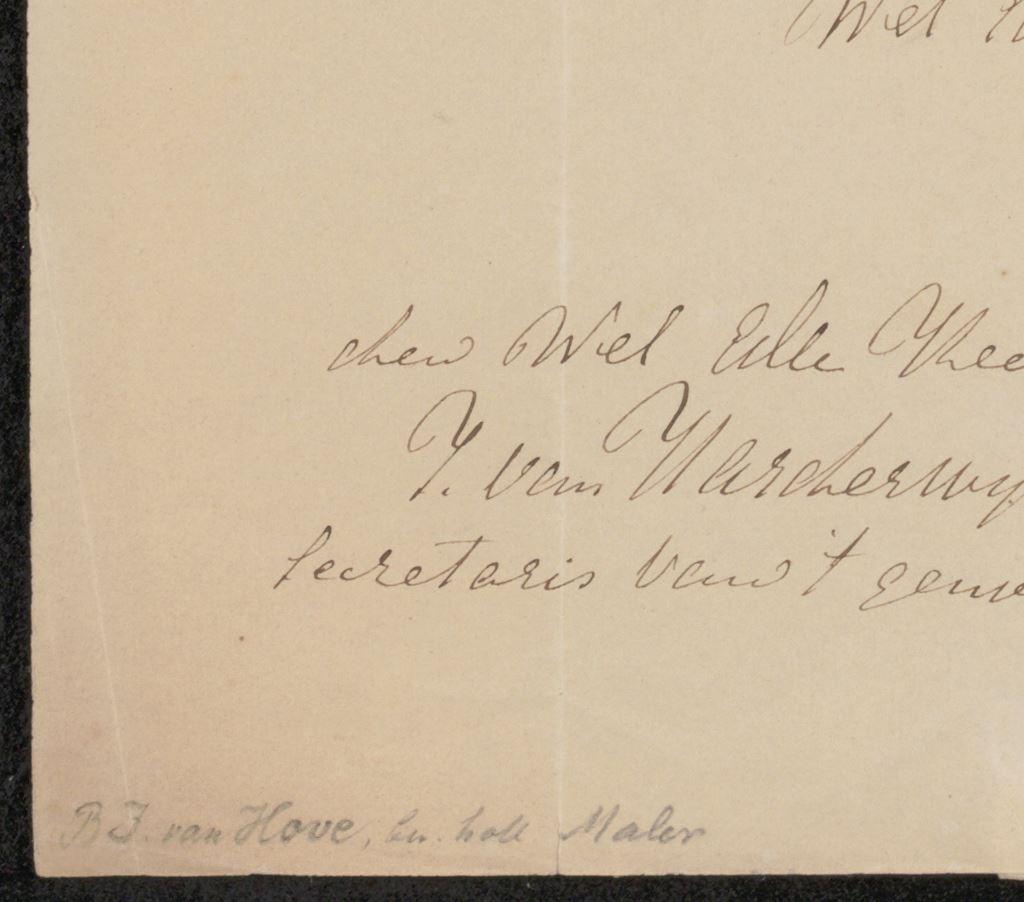 Wel
den Wel Edle Heer
J. van Harderwyk
Secretaris van 't
B J. van Hove, ber. holl Maler